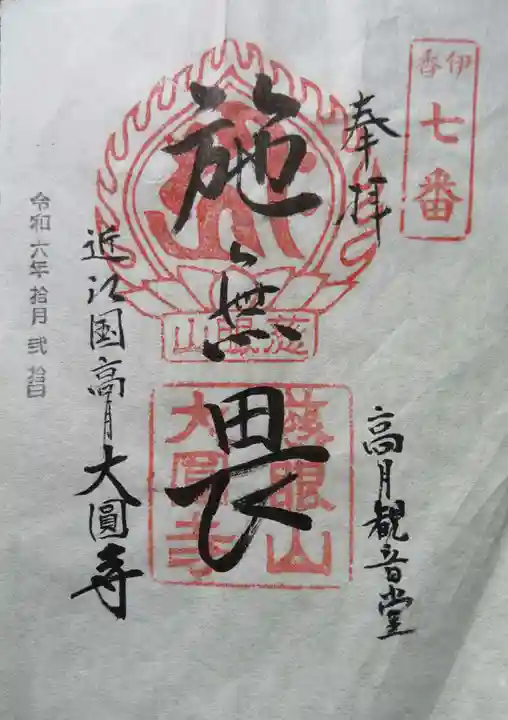 伊香
七番
奉拝
高月観音堂
施無畏
慈眼山
慈眼山
大圓寺
近江国高月大圓寺
令和六年拾月弐拾四日